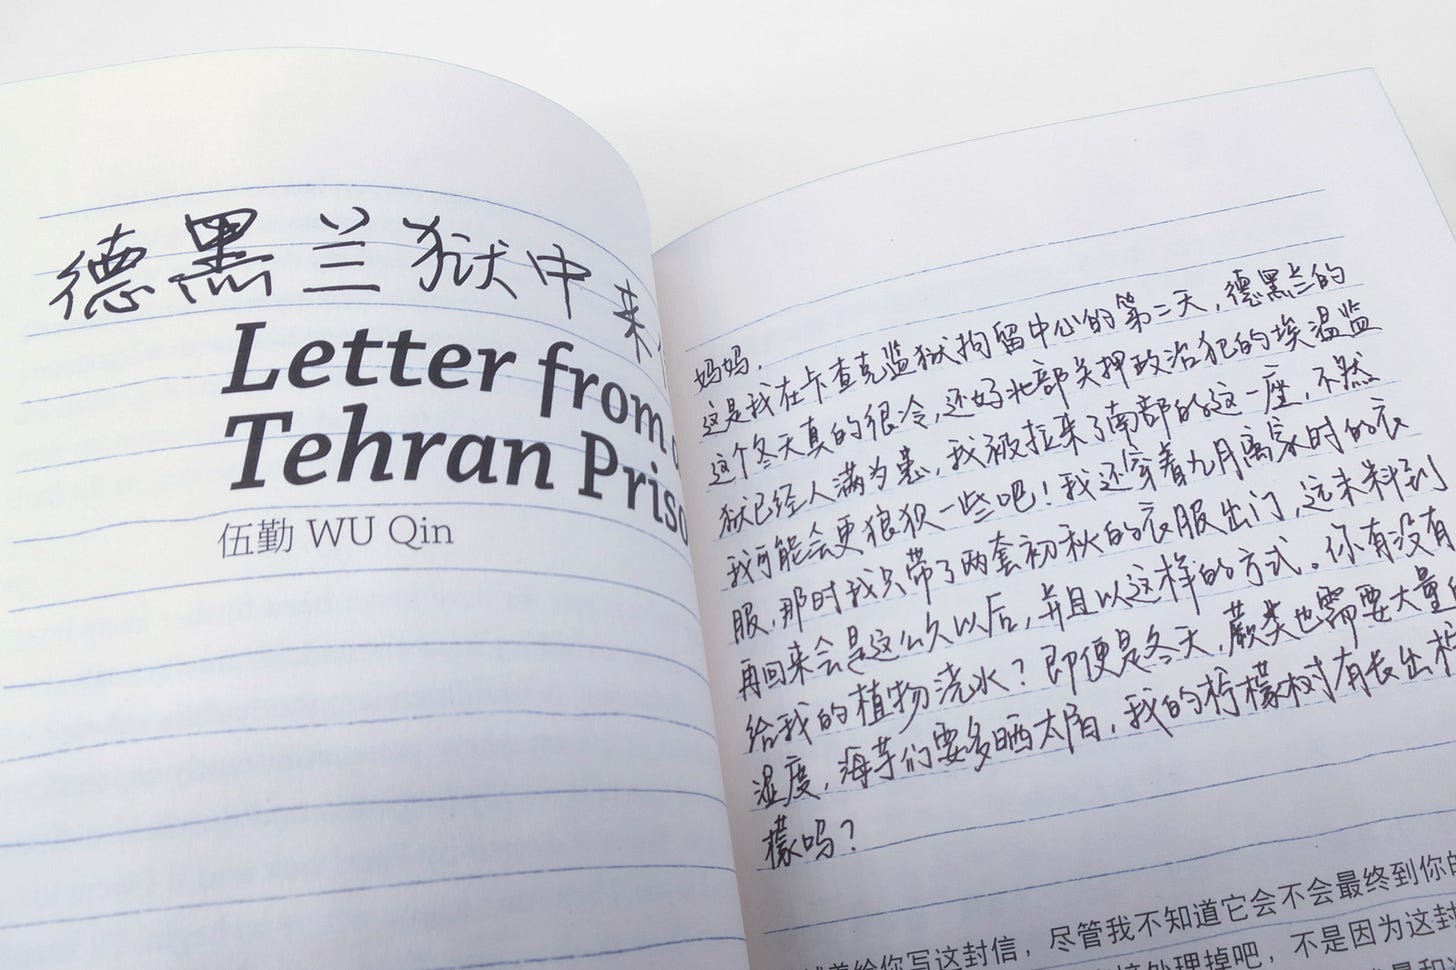 德黑兰狱中来
Letter from a
Tehran Priso
伍勤 WU Qin
妈妈，
这是我在卡查克监狱拘留中心的第二天，德黑兰的
这个冬天真的很冷，还好北部关押政治犯的埃温监
狱已经人满为患，我被拉来了南部的这一座，不然
我可能会更狼狈一些吧！我还穿着九月离家时的衣
服，那时我只带了两套初秋的衣服出门，远未料到
再回来会是这么久以后，并且以这样的方式。你有没有
给我的植物浇水？即便是冬天，蕨类也需要大量的
湿度，海芋们要多晒太阳，我的柠檬树有长出柠
檬吗？
着给你写这封信，尽管我不知道它会不会最终到你的
处理掉吧，不是因为这封